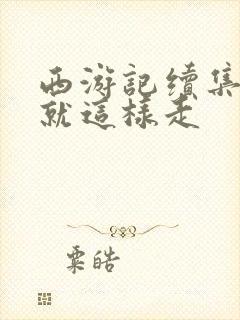 西游記續集
就這樣走
粟皓